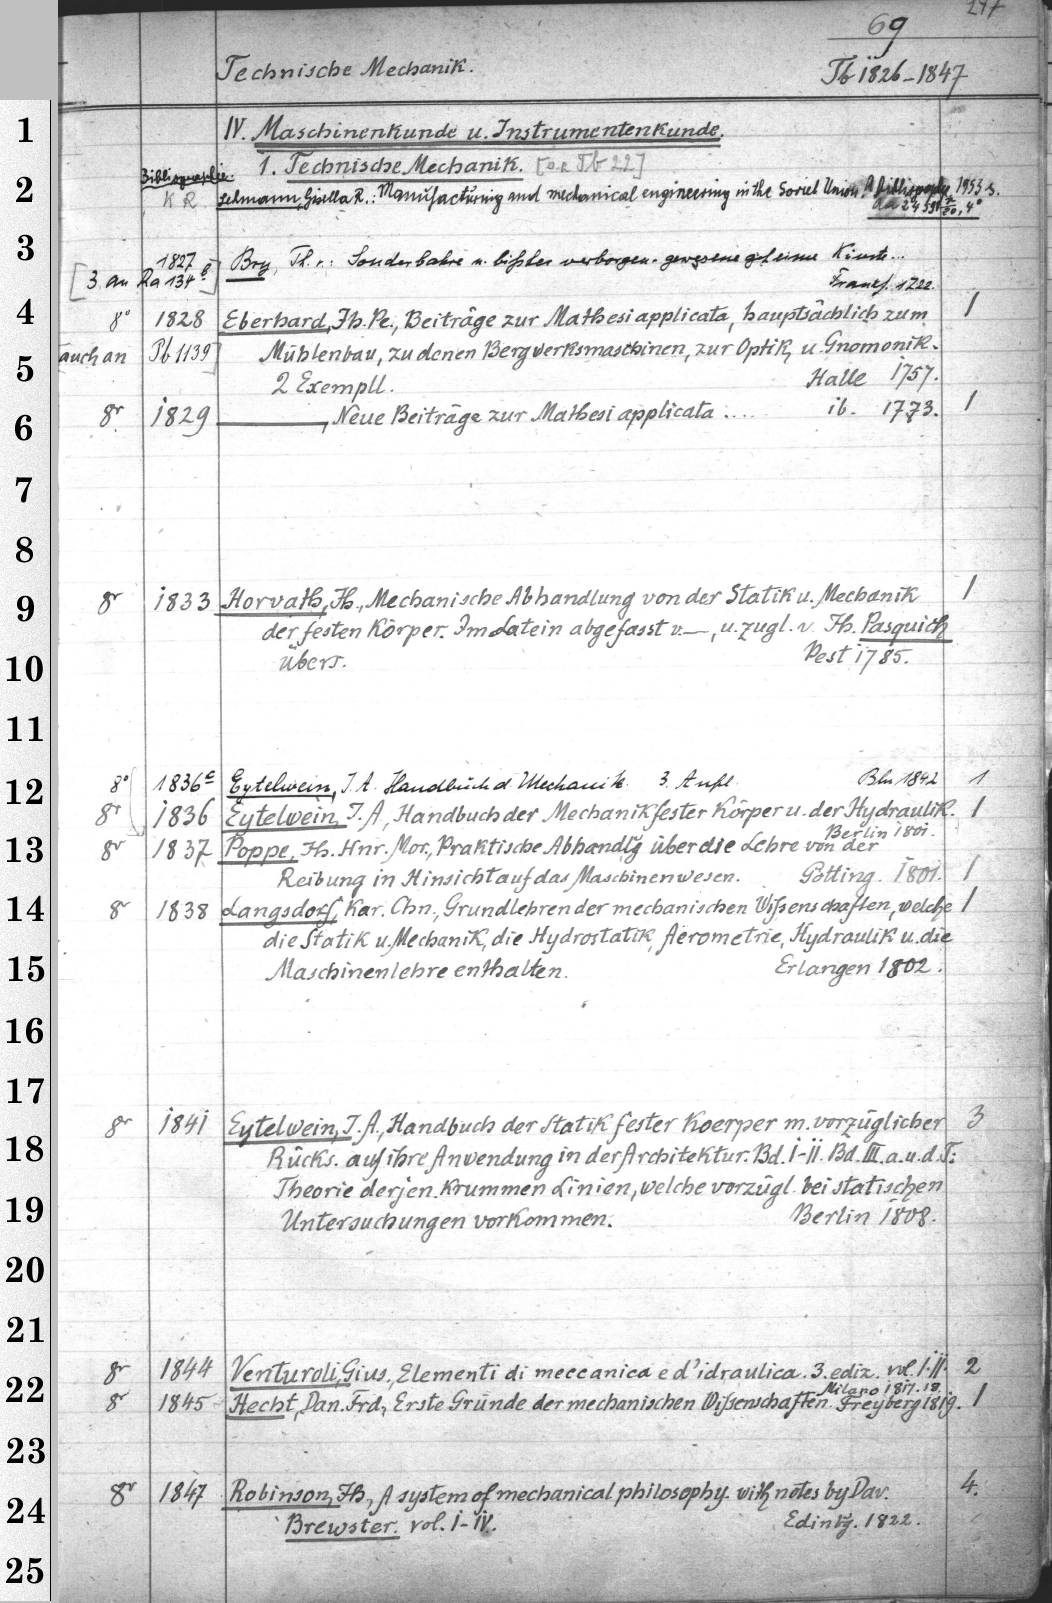 69
Technische Mechanik. Tb 1826-1847
1 IV. Maschinenkunde u. Instrumentenkunde.
1. Technische Mechanik. [o.e. Tb 22]
Bibliographie.
2 K R Selmann, Gisella R.: Manufacturing and mechanical engineering in the Soviet Union. A Bibliography 1953 s.
4°
3 1827 Bry, Th. v.: Sonderbahre u. bißher verborgen-gewesene geheime Künste...
[3 an Ra 134 g] Frankf. 1722.
4 8° 1828 Eberhard, Jh. Pe., Beiträge zur Mathesi applicata, hauptsächlich zum 1
auch an Pb 1139] Mühlenbau, zu denen Bergwerksmaschinen, zur Optik, u. Gnomonik.
5 2 Exempll. Halle 1757.
6 8r. 1829 ———, Neue Beiträge zur Mathesi applicata .... ib. 1773. 1
7
8
9 8r 1833 Horvath, Jh., Mechanische Abhandlung von der Statik u. Mechanik 1
der festen Körper. Im Latein abgefasst v. —, u. zugl. v. Jh. Pasquich
10 übers. Pest 1785.
11
12 8° 1836a Eytelwein, J. A. Handbuch d Mechanik. 3. Aufl. Bln 1842 1
8r 1836 Eytelwein, J. A., Handbuch der Mechanik fester Körper u. der Hydraulik. 1
Berlin 1801.
13 8r 1837 Poppe, Jh. Hnr. Mor., Praktische Abhandlg über die Lehre von der
Reibung in Hinsicht auf das Maschinenwesen. Götting. 1801. 1
14 8r 1838 Langsdorf, Kar. Chn., Grundlehren der mechanischen Wißenschaften, welche 1
die Statik u. Mechanik, die Hydrostatik, Aerometrie, Hydraulik u. die
15 Maschinenlehre enthalten. Erlangen 1802.
16
17
8r 1841 Eytelwein, J. A., Handbuch der Statik fester Koerper m. vorzüglicher 3
18 Rücks. auf ihre Anwendung in der Architektur. Bd. I-II. Bd. III. a. u. d. T:
Theorie derjen. krummen Linien, welche vorzügl. bei statischen
19 Untersuchungen vorkommen. Berlin 1808.
20
21
8r 1844 Venturoli, Gius., Elementi di meccanica e d'idraulica. 3. ediz. vol. I-II. 2
Milano 1817. 18.
22 8r 1845 Hecht, Dan. Frd., Erste Gründe der mechanischen Wißenschaften. Freyberg 1819. 1
23
8r 1847 Robinson, Jh., A system of mechanical philosophy. with notes by Dav. 4.
24 Brewster. vol. I-IV. Edinbg. 1822.
25